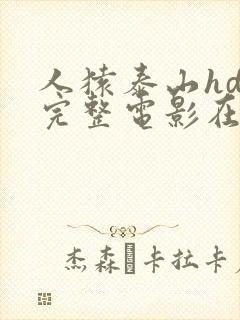 人猿泰山hd
完整電影在
杰森·卡拉卡